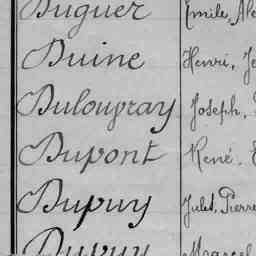 Duguer Emile, Ale
Duine Henri, Je
Dulougray Joseph,
Dupont René.
Dupuy Jules, Pierre
Dupuy Marcel